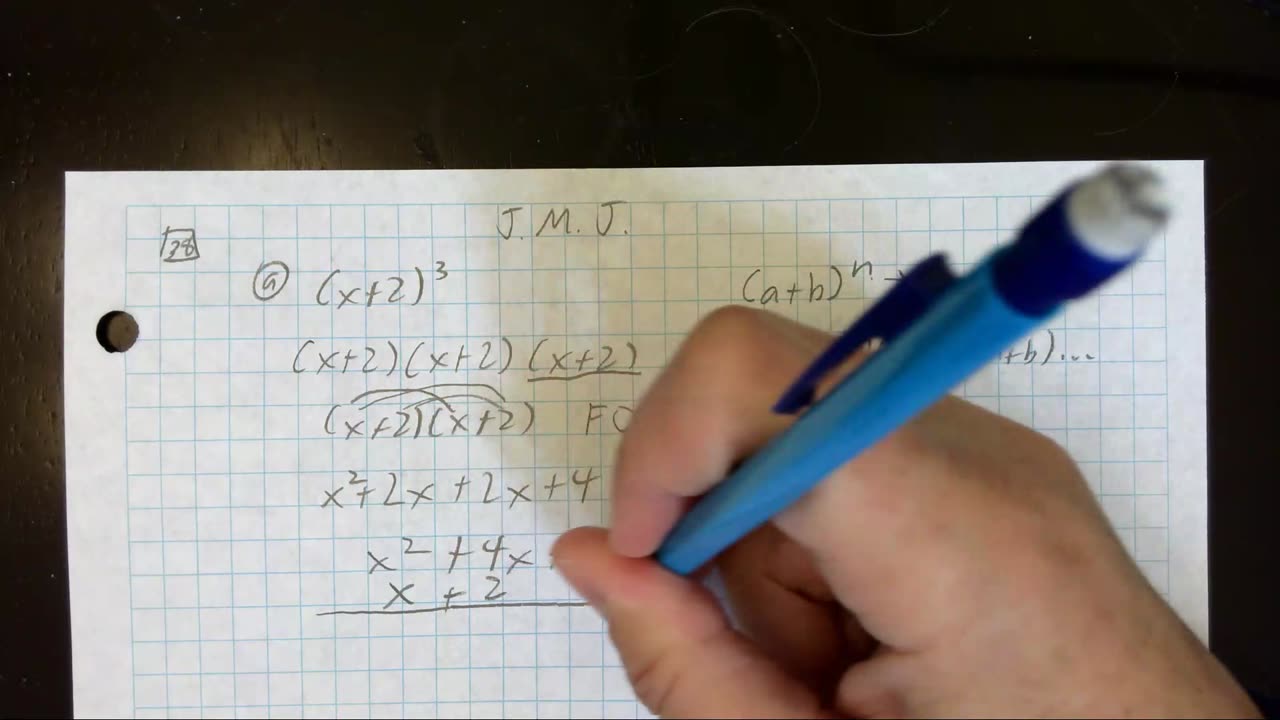 J. M. J.
28
a (x+2)³
(a+b)ⁿ
(x+2)(x+2)(x+2)
+b)...
(x+2)(x+2) FO
x²+2x+2x+4
x² +4x
x + 2